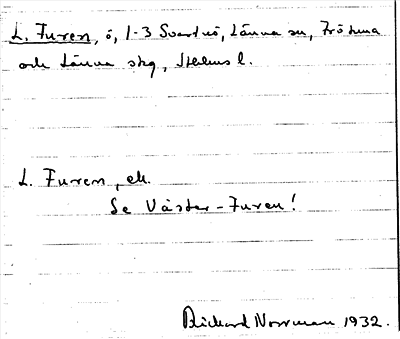 L. Furen, ö, 1-3 Svartsö, Länna sn, Frötuna
och Länna skg, Sthlms l.
L. Furen, ek.
Se Väster-Furen!
Rickard Norrman 1932.